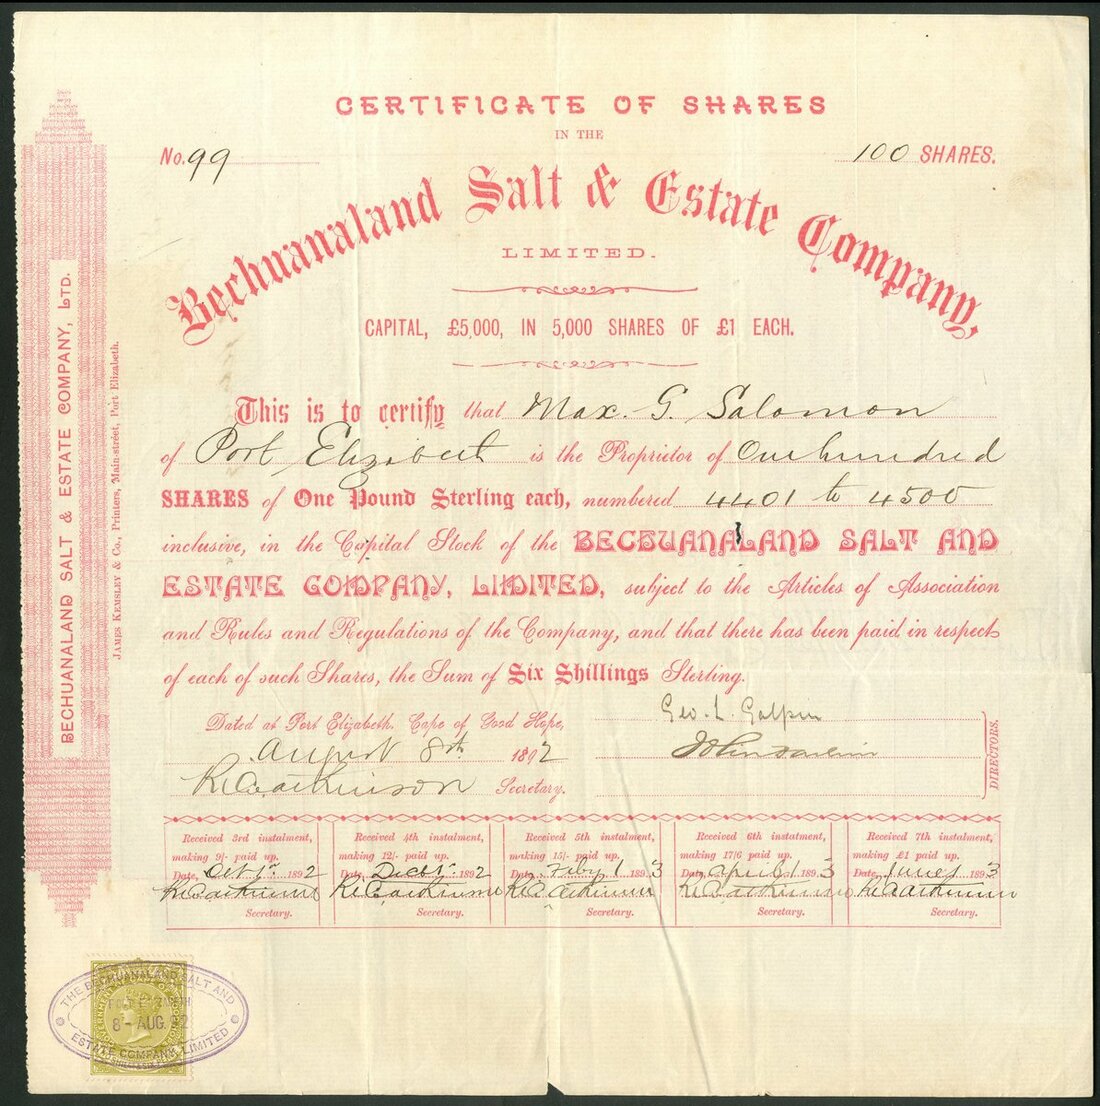 CERTIFICATE OF SHARES
IN THE
No. 99
100 SHARES.
Bechuanaland Salt & Estate Company,
LIMITED.
CAPITAL, £5,000, IN 5,000 SHARES OF £1 EACH.
This is to certify that Max. G. Salomon
of Port Elizabeth is the Proprietor of One hundred
SHARES of One Pound Sterling each, numbered 4401 to 4500
inclusive, in the Capital Stock of the BECHUANALAND SALT AND
ESTATE COMPANY, LIMITED, subject to the Articles of Association
and Rules and Regulations of the Company, and that there has been paid in respect
of each of such Shares, the Sum of Six Shillings Sterling.
Dated at Port Elizabeth. Cape of Good Hope,
August 8th 1892
Secretary.
Geo. L. Galpin
DIRECTORS.
Received 3rd instalment,
making 9/- paid up.
Date, Oct 1st 1892
Secretary.
Received 4th instalment,
making 12/- paid up.
Date, Decbr 1 1892
Secretary.
Received 5th instalment,
making 15/- paid up.
Date, Feby 1 1893
Secretary.
Received 6th instalment,
making 17/6 paid up.
Date, April 1 1893
Secretary.
Received 7th instalment,
making £1 paid up.
Date, June 1 1893
Secretary.
BECHUANALAND SALT & ESTATE COMPANY, LTD.
JAMES KEMSLEY & Co., Printers, Main-street, Port Elizabeth.
THE BECHUANALAND SALT AND
PORT ELIZABETH
8 - AUG. 92
ESTATE COMPANY LIMITED